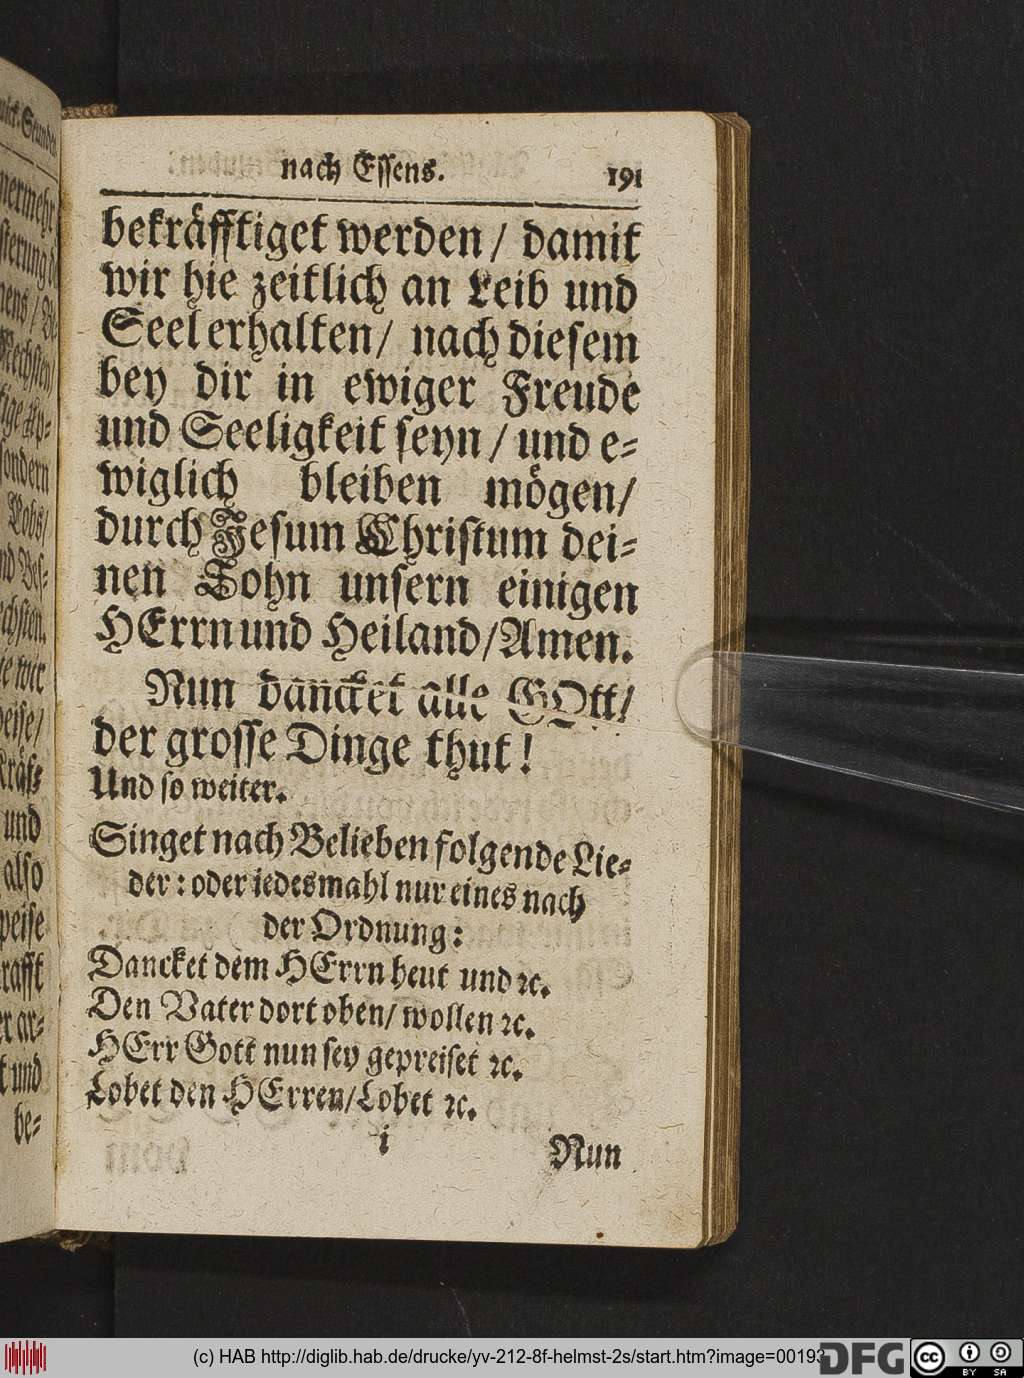 nach Essens.
191
bekräfftiget werden / damit
wir hie zeitlich an Leib und
Seel erhalten / nach diesem
bey dir in ewiger Freude
und Seeligkeit seyn / und e-
wiglich bleiben mögen /
durch Jesum Christum dei-
nen Sohn unsern einigen
HErrn und Heiland / Amen.
Nun dancket alle GOtt /
der grosse Dinge thut !
Und so weiter.
Singet nach Belieben folgende Lie-
der : oder iedesmahl nur eines nach
der Ordnung :
Dancket dem HErrn heut und ꝛc.
Den Vater dort oben / wollen ꝛc.
HErr Gott nun sey gepreiset ꝛc.
Lobet den HErren / Lobet ꝛc.
i
Nun
nermehr
sondern
Lobs /
und
also
peise
rafft
er ar-
t und
be-
(c) HAB http://diglib.hab.de/drucke/yv-212-8f-helmst-2s/start.htm?image=00193
DFG
cc
BY SA